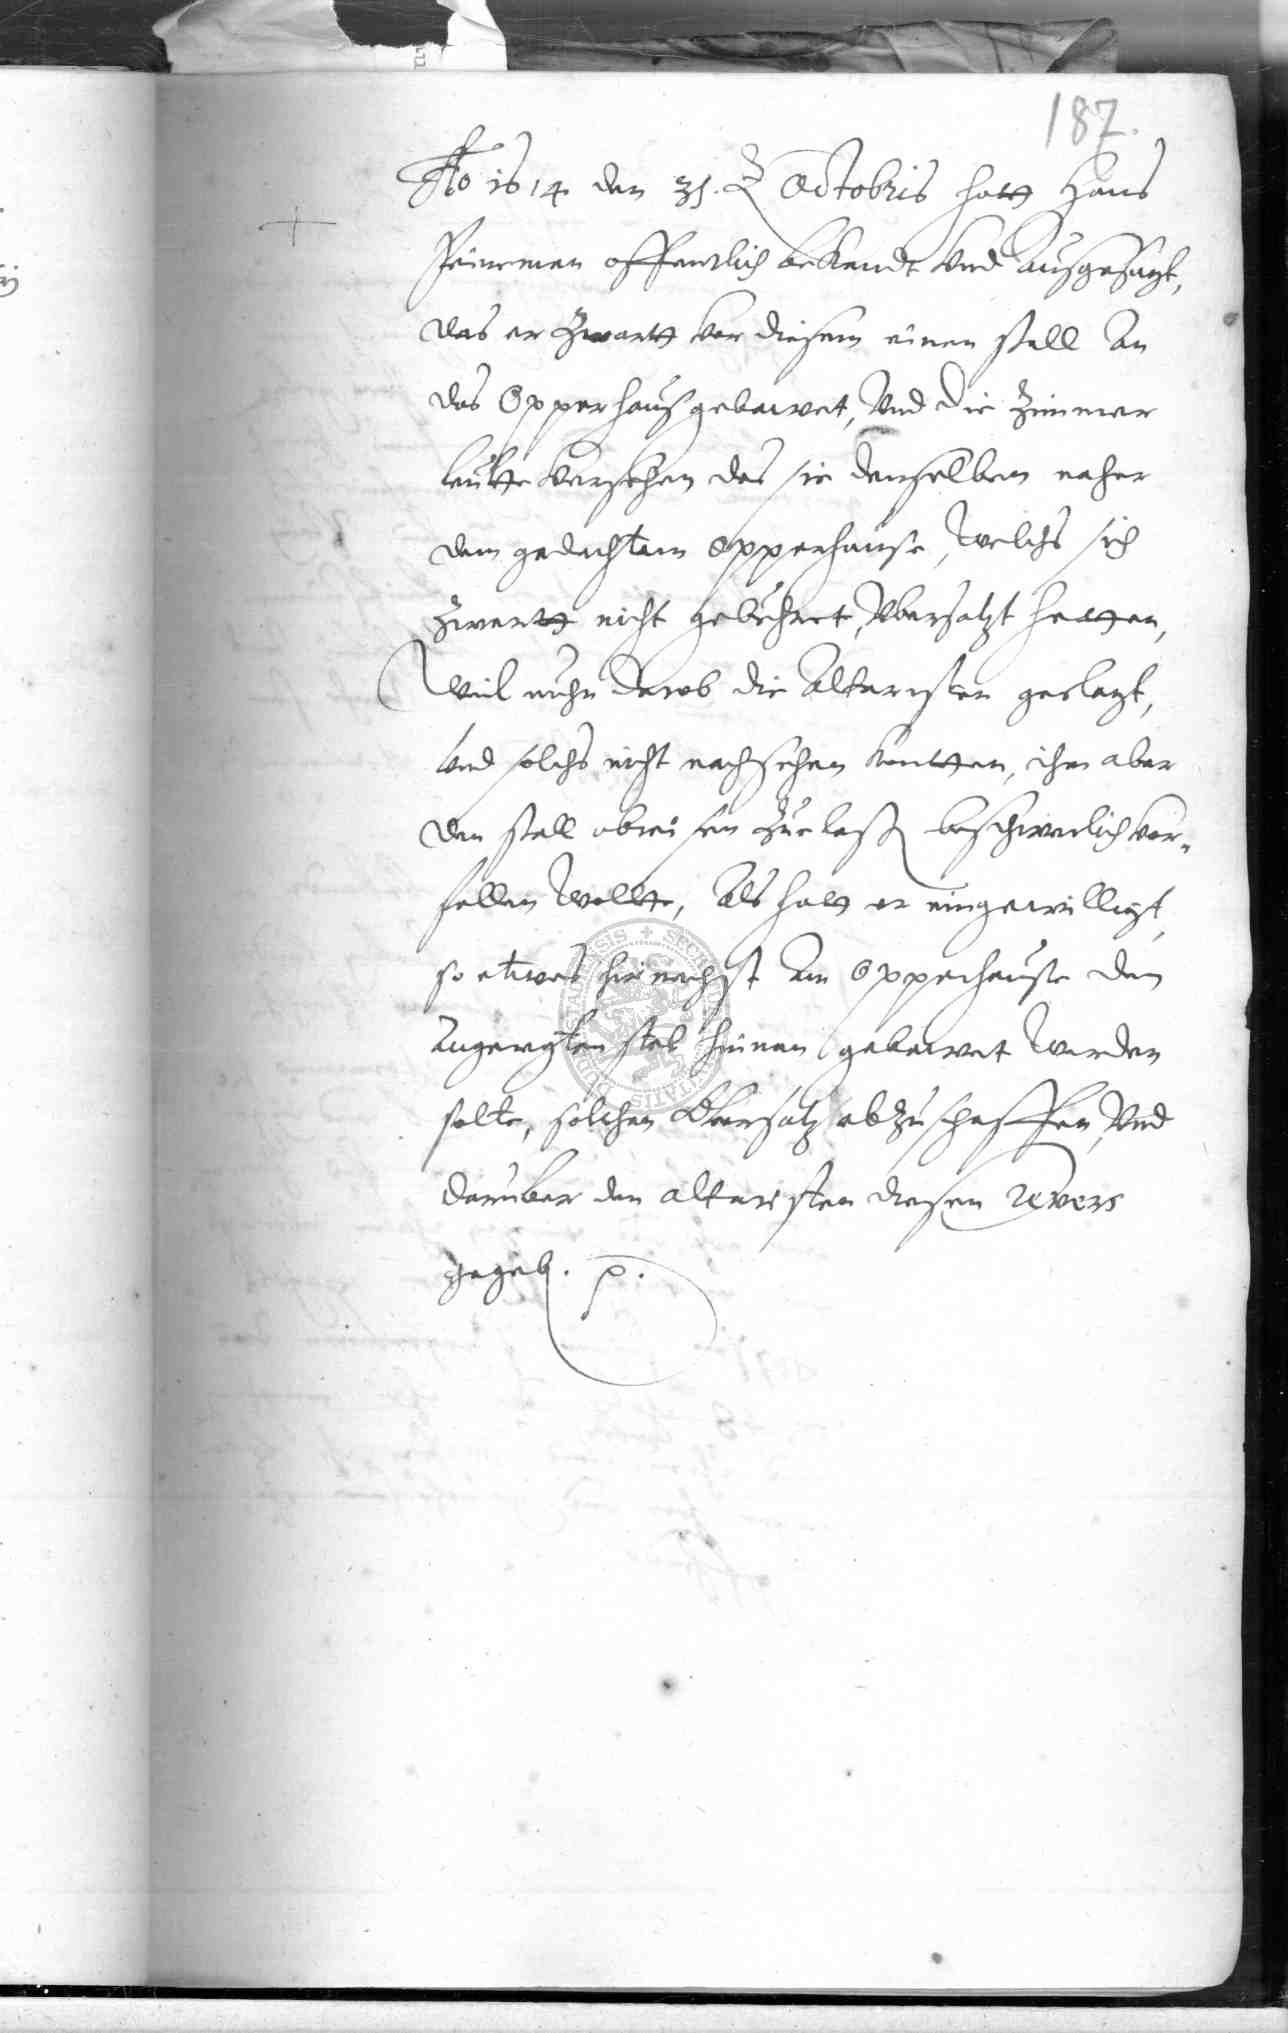 187.
Ao 1614 den 31. Octobris hatt Hans
Peineman offentlich bekandt vnd außgesagt,
das er zwartt vor diesem einen stall an
das Opperhauß gebawet, Vnd die Zimmer
leutte versehen das sie denselben naher
dem gedachtem Opperhause, welchs sich
zwartt nicht gebuhret, Vbersatzt hetten,
Weil nuhn darob die Altaristen geclagt,
vnd solchs nicht nachsehen kontten, ihm aber
den stall abreissen zue lassen beschwerlich vor-
fallen wollte, Als hatt er eingewilligt,
so etwas hirnachst am Opperhause dem
angeregten stal hinan gebawet werden
solte, solchen Vbersatz abzuschaffen, Vnd
daruber den altaristen diesen Revers
gegeb. p.